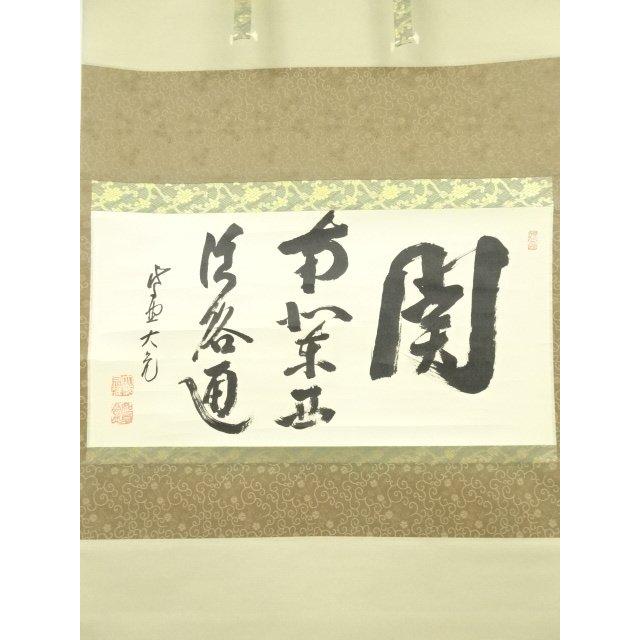 関
南北東西
活路通
紫野大亀